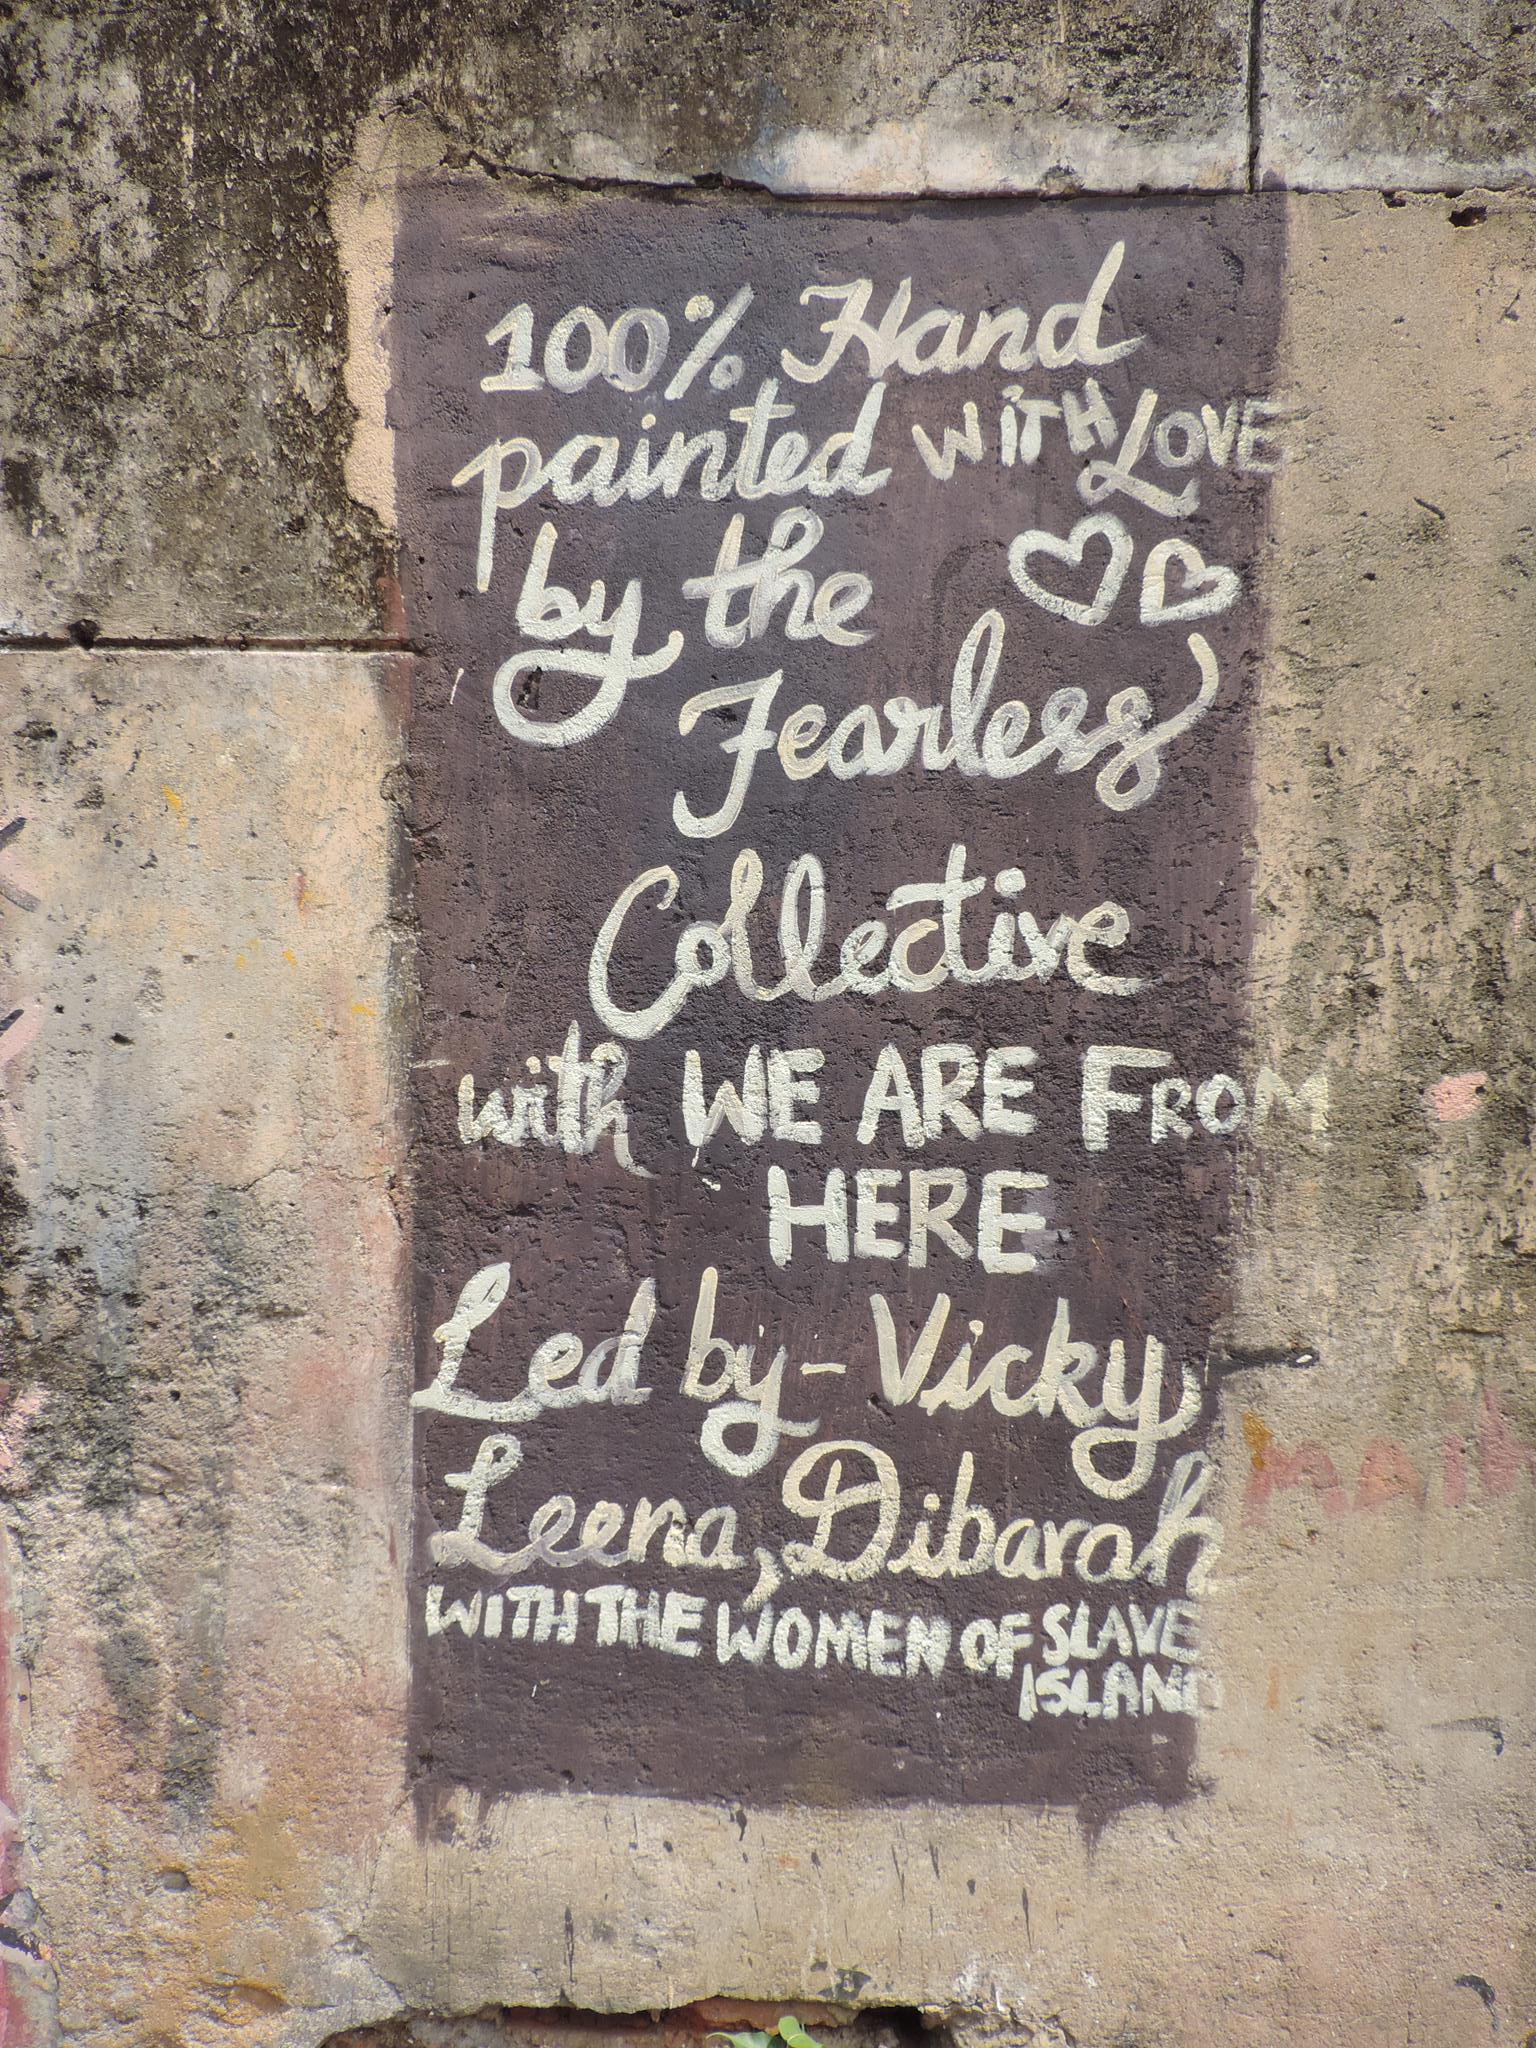 100% Hand
painted WITH LOVE
by the
Fearless
Collective
with WE ARE FROM
HERE
Led by - Vicky
Leena, Dibarah
WITH THE WOMEN OF SLAVE
ISLAND